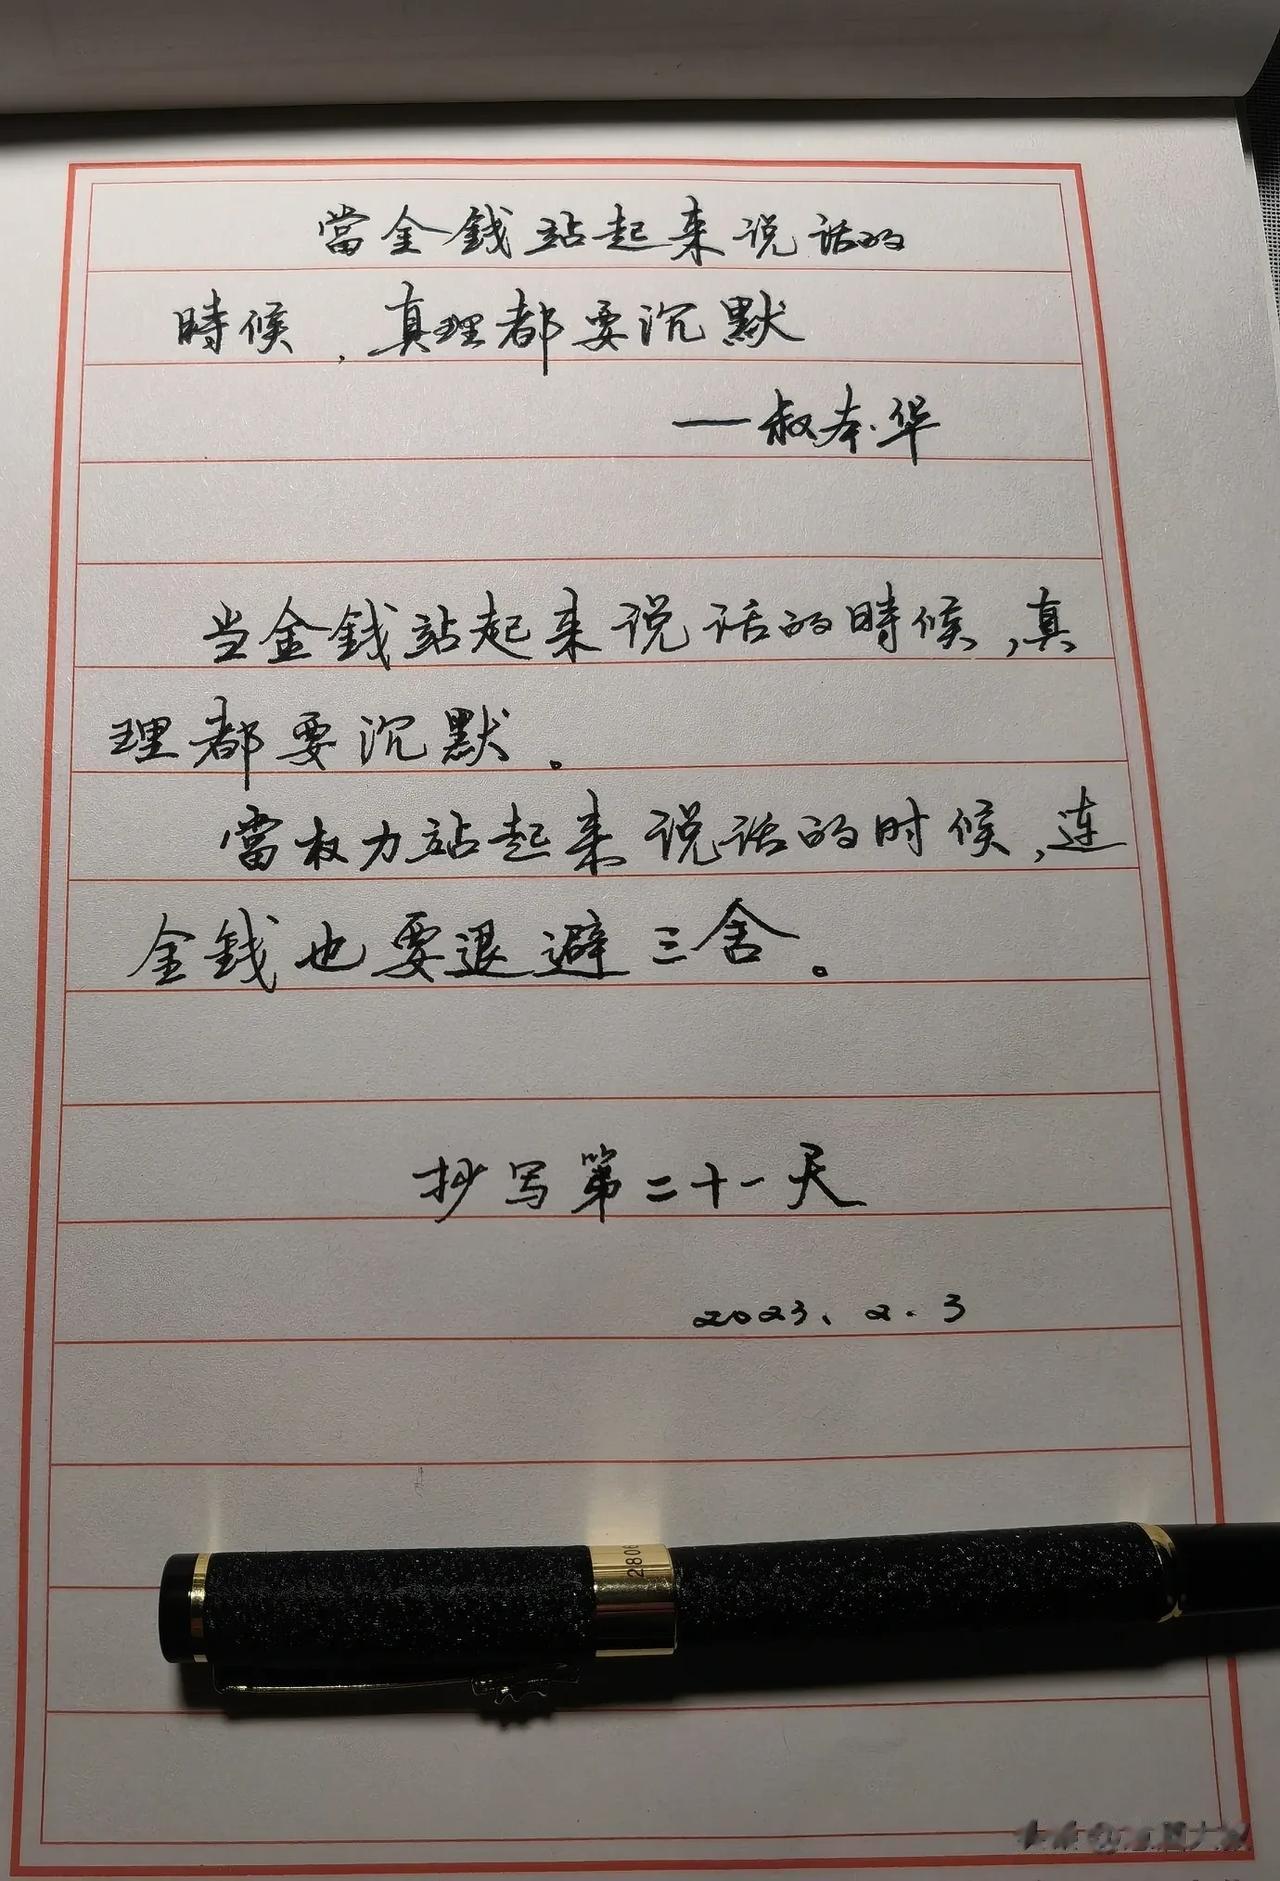 當金錢站起来说话的
時候，真理都要沉默
——叔本华
当金錢站起来说话的時候，真
理都要沉默。
當权力站起来说话的时候，连
金錢也要退避三舍。
抄写第二十一天
2023、2.3
2808